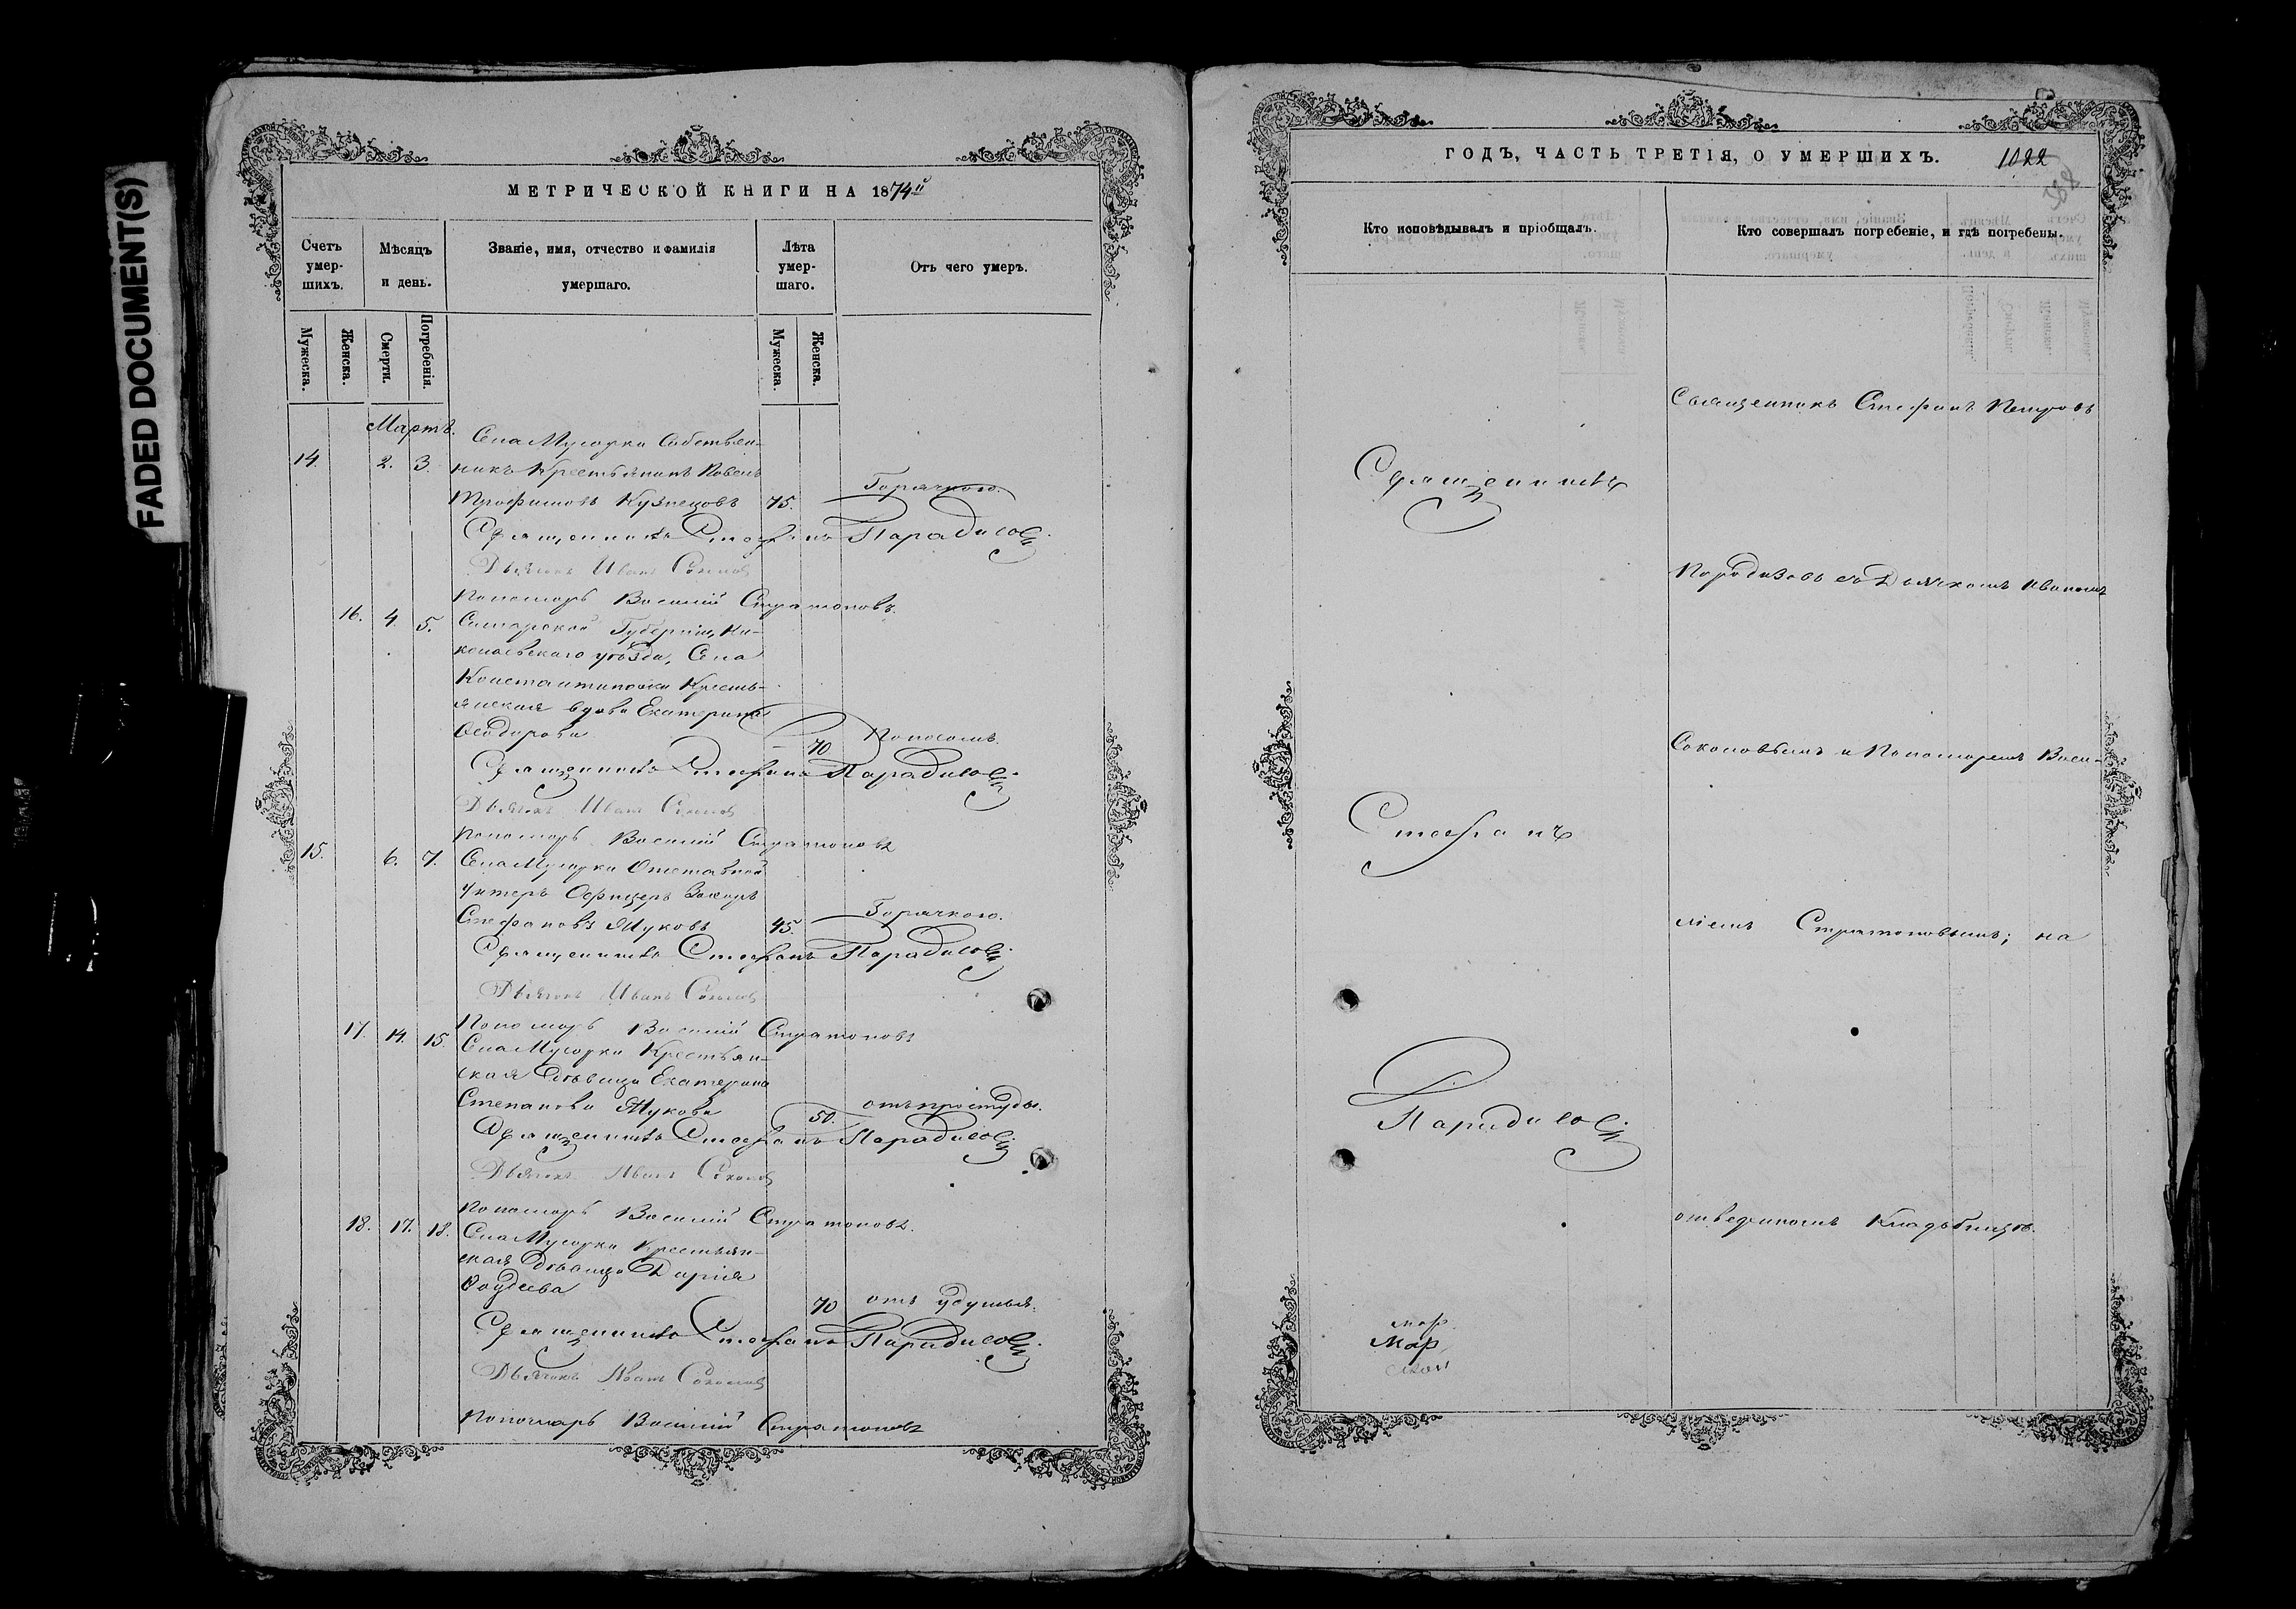 FADED DOCUMENT(S)
МЕТРИЧЕСКОЙ КНИГИ НА 1874й
Счетъ умер-шихъ.
Мѣсяцъ и день.
Званіе, имя, отчество и фамилія умершаго.
Лѣта умер-шаго.
Отъ чего умеръ.
Мужеска.
Женска.
Смерти.
Погребенія.
Мужеска.
Женска.
Мартъ.
Села Мусорки Собствен-
14. 2. 3. никъ Крестьянинъ Павелъ
Горячкою.
Трофимовъ Кузнецовъ 75.
Священникъ Стефанъ Парадизовъ
Дьячокъ Иванъ Соколовъ
Пономарь Василій Стратоновъ.
16. 4. 5. Самарской Губерніи, Ни-
колаевскаго уѣзда, Села
Константиновки Кресть-
янская вдова Екатерина
Ѳеодорова 70 Поносомъ.
Священникъ Стефанъ Парадизовъ
Дьячокъ Иванъ Соколовъ
Пономарь Василій Стратоновъ
15. 6. 7. Села Мусорки Отставной
Унтеръ Офицеръ Захаръ
Стефановъ Жуковъ 45. Горячкою.
Священникъ Стефанъ Парадизовъ
Дьячокъ Иванъ Соколовъ
Пономарь Василій Стратоновъ
17. 14. 15. Села Мусорки Крестьян-
ская Дѣвица Екатерина
Степанова Жукова 50. отъ простуды.
Священникъ Стефанъ Парадизовъ
Дьячокъ Иванъ Соколовъ
Пономарь Василій Стратоновъ.
18. 17. 18. Села Мусорки Крестьян-
ская Дѣвица Дарія
70 отъ удушья.
Священникъ Стефанъ Парадизовъ
Дьячокъ Иванъ Соколовъ
Пономарь Василій Стратоновъ
ГОДЪ, ЧАСТЬ ТРЕТІЯ, О УМЕРШИХЪ.
1022
Кто исповѣдывалъ и пріобщалъ.
Кто совершалъ погребеніе, и гдѣ погребены.
Священникъ Стефанъ Петровъ
Священникъ
Парадизовъ съ Дьячкомъ Иваномъ
Соколовымъ и Пономаремъ Васи-
Стефанъ
ліемъ Стратоновымъ; на
Парадизовъ
отведенномъ Кладбищѣ.
мар
мар